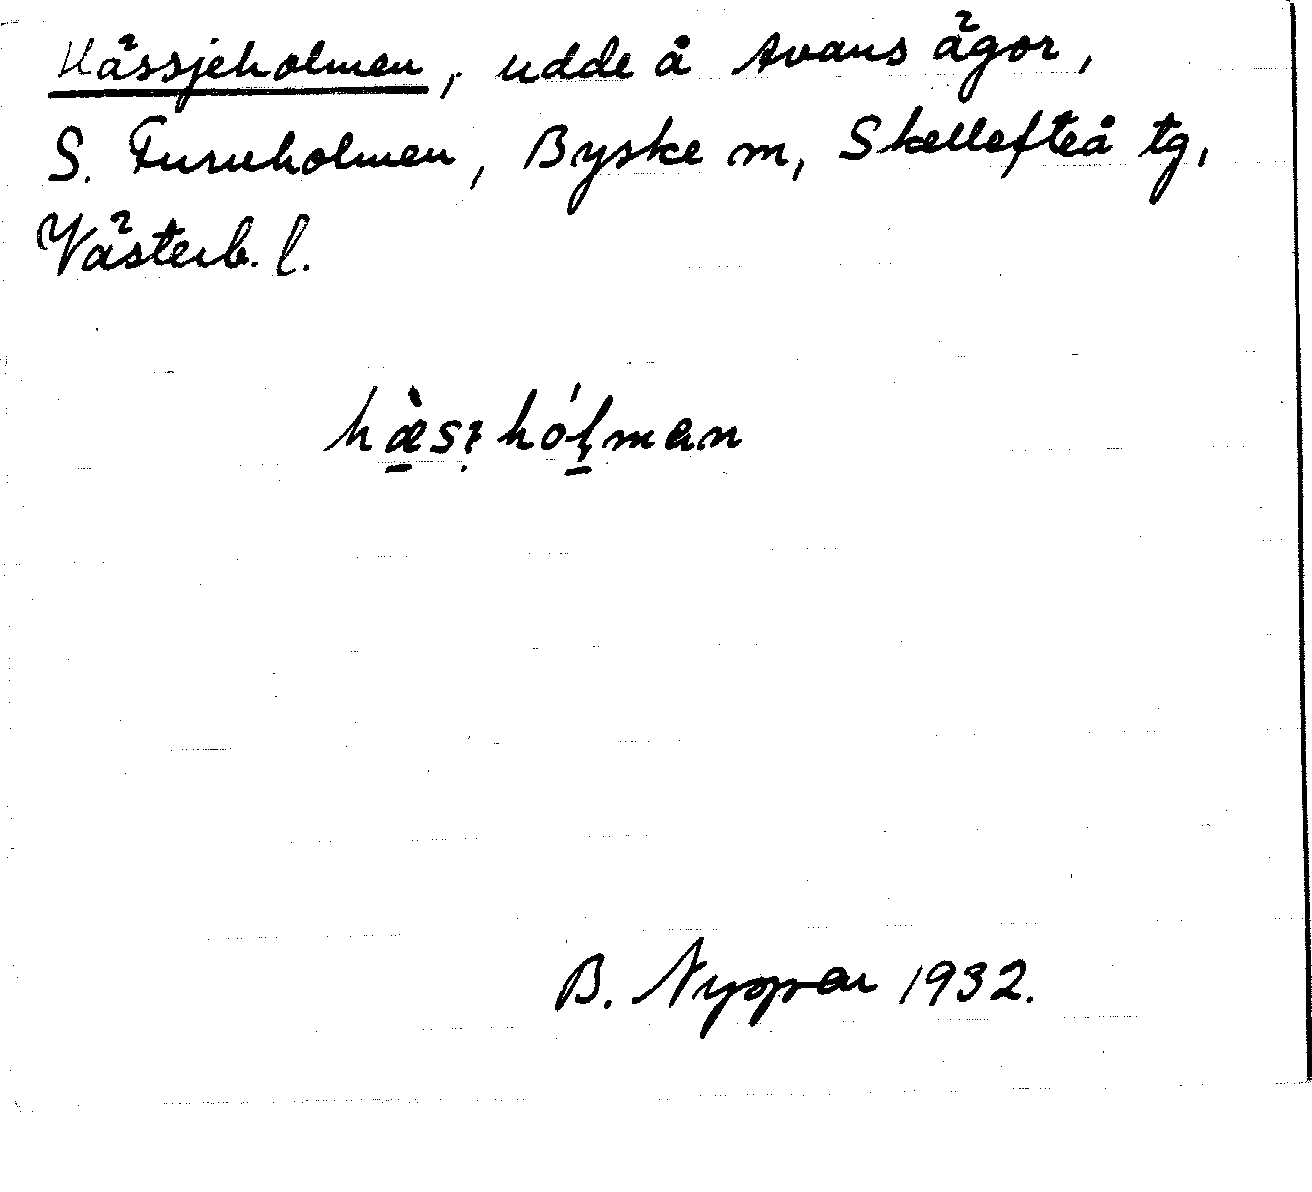 Hässjeholmen, udde å Avans ägor,
S. Furuholmen, Byske m, Skellefteå tg,
Västerb. l.
B. 1932.